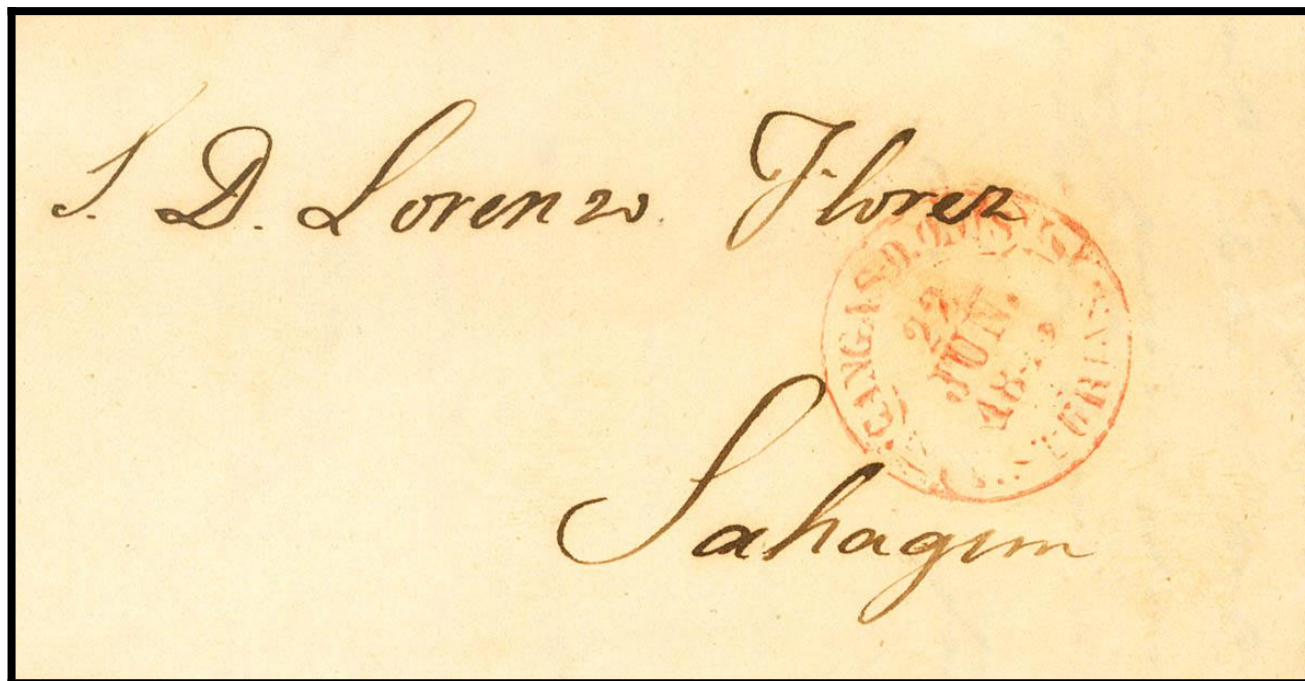 S. D. Lorenzo Florez
CANGAS.D.
22
JUN.
Sahagun